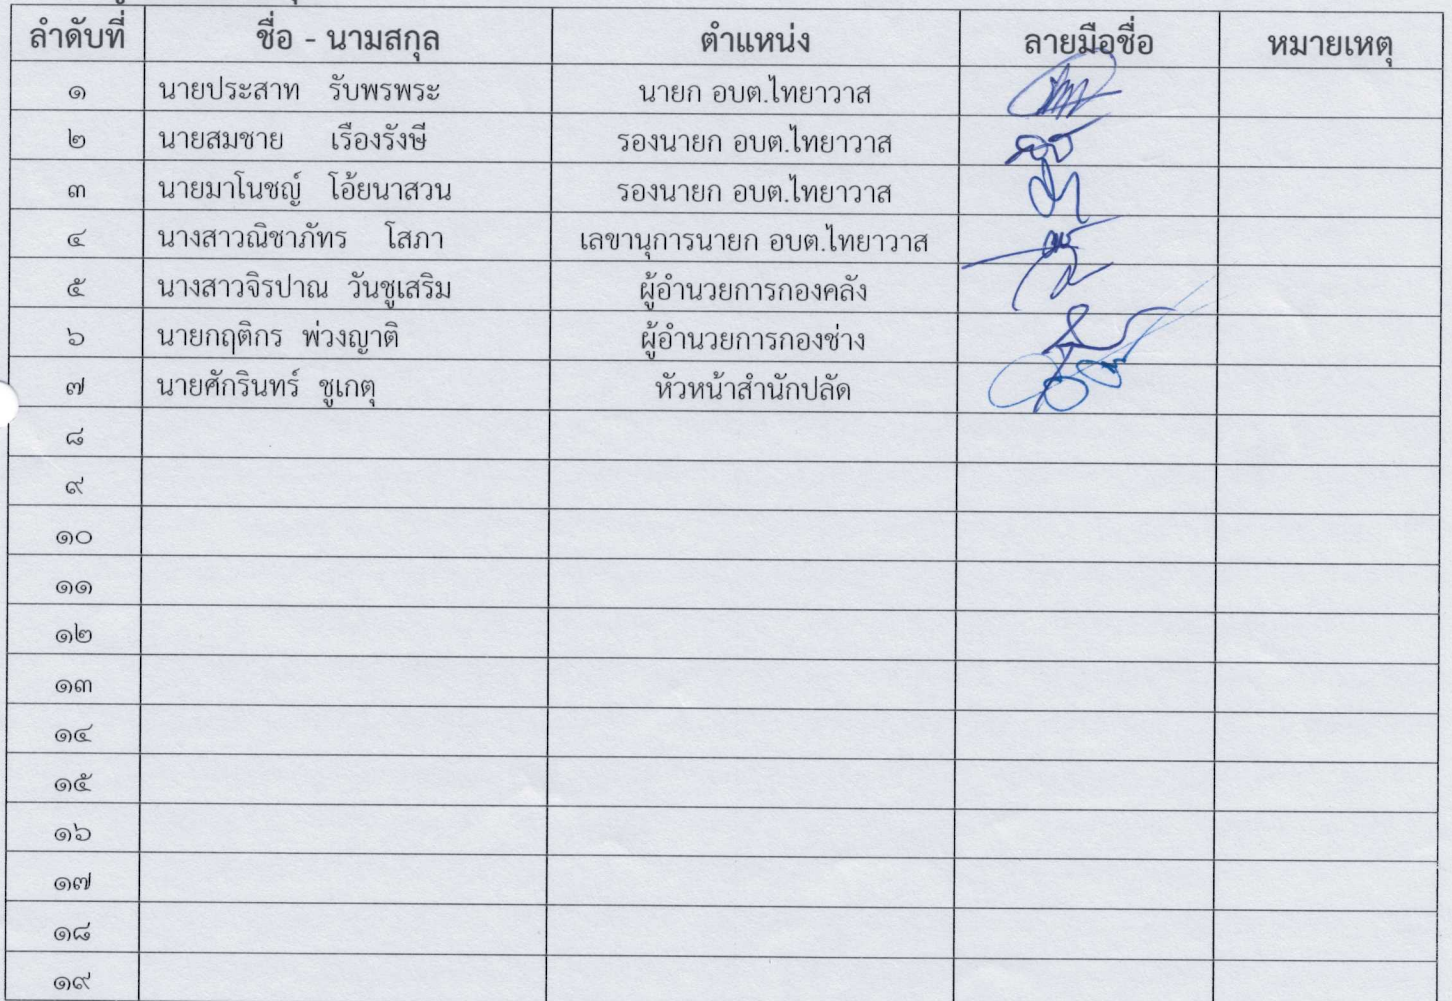 ลำดับที่ ชื่อ - นามสกุล ตำแหน่ง ลายมือชื่อ หมายเหตุ
๑ นายประสาท รับพรพระ นายก อบต.ไทยาวาส
๒ นายสมชาย เรืองรังษี รองนายก อบต.ไทยาวาส
๓ นายมาโนชญ์ โอ้ยนาสวน รองนายก อบต.ไทยาวาส
๔ นางสาวณิชาภัทร โสภา เลขานุการนายก อบต.ไทยาวาส
๕ นางสาวจิรปาณ วันชูเสริม ผู้อำนวยการกองคลัง
๖ นายกฤติกร พ่วงญาติ ผู้อำนวยการกองช่าง
๗ นายศักรินทร์ ชูเกตุ หัวหน้าสำนักปลัด
๘
๙
๑๐
๑๑
๑๒
๑๓
๑๔
๑๕
๑๖
๑๗
๑๘
๑๙